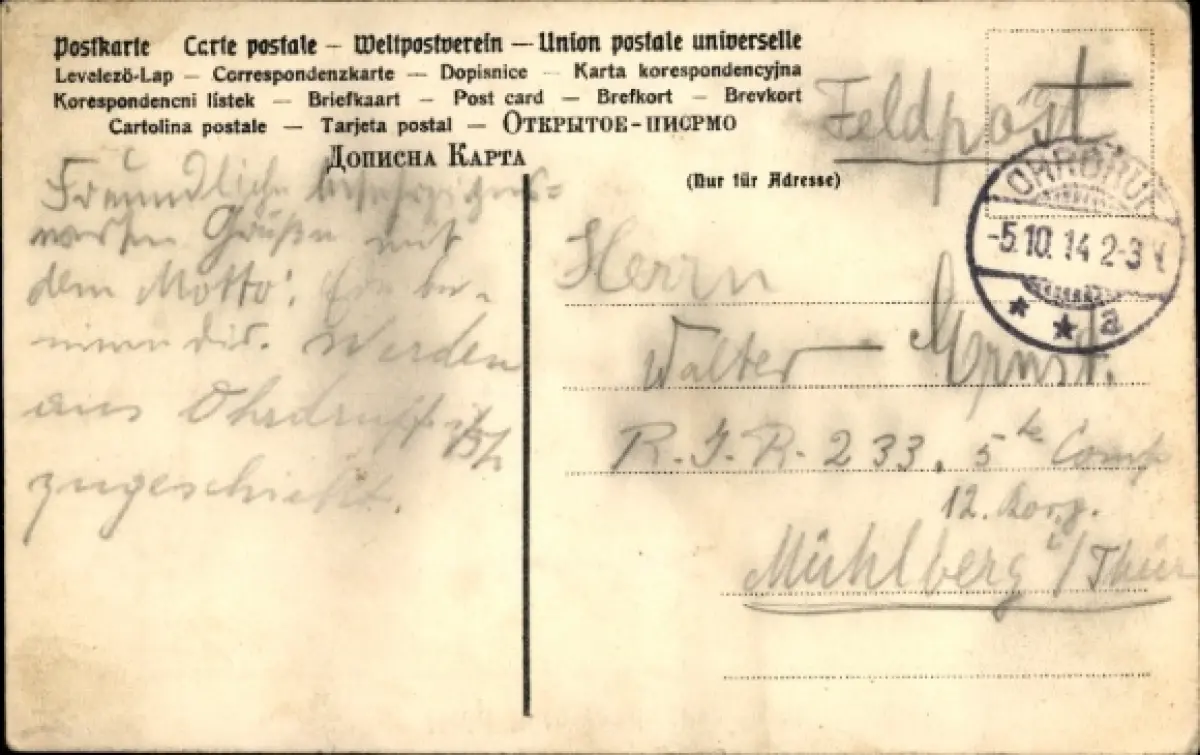 Postkarte Carte postale – Weltpostverein – Union postale universelle
Levelező-Lap – Correspondenzkarte – Dopisnice – Karta korespondencyjna
Korespondencni lístek – Briefkaart – Post card – Brefkort – Brevkort
Cartolina postale – Tarjeta postal – Открытое-письмо
Дописна Карта
(Nur für Adresse)
Feldpost
OHRDRUF
-5.10.14 2-3
* * a
Freundliche
Grüße mit
dem Motto:
Werden
aus Ohrdruff
zugeschickt.
Herrn
Walter
R.I.R. 233, 5te Comp
12. Korp.
Mühlberg i/Thür